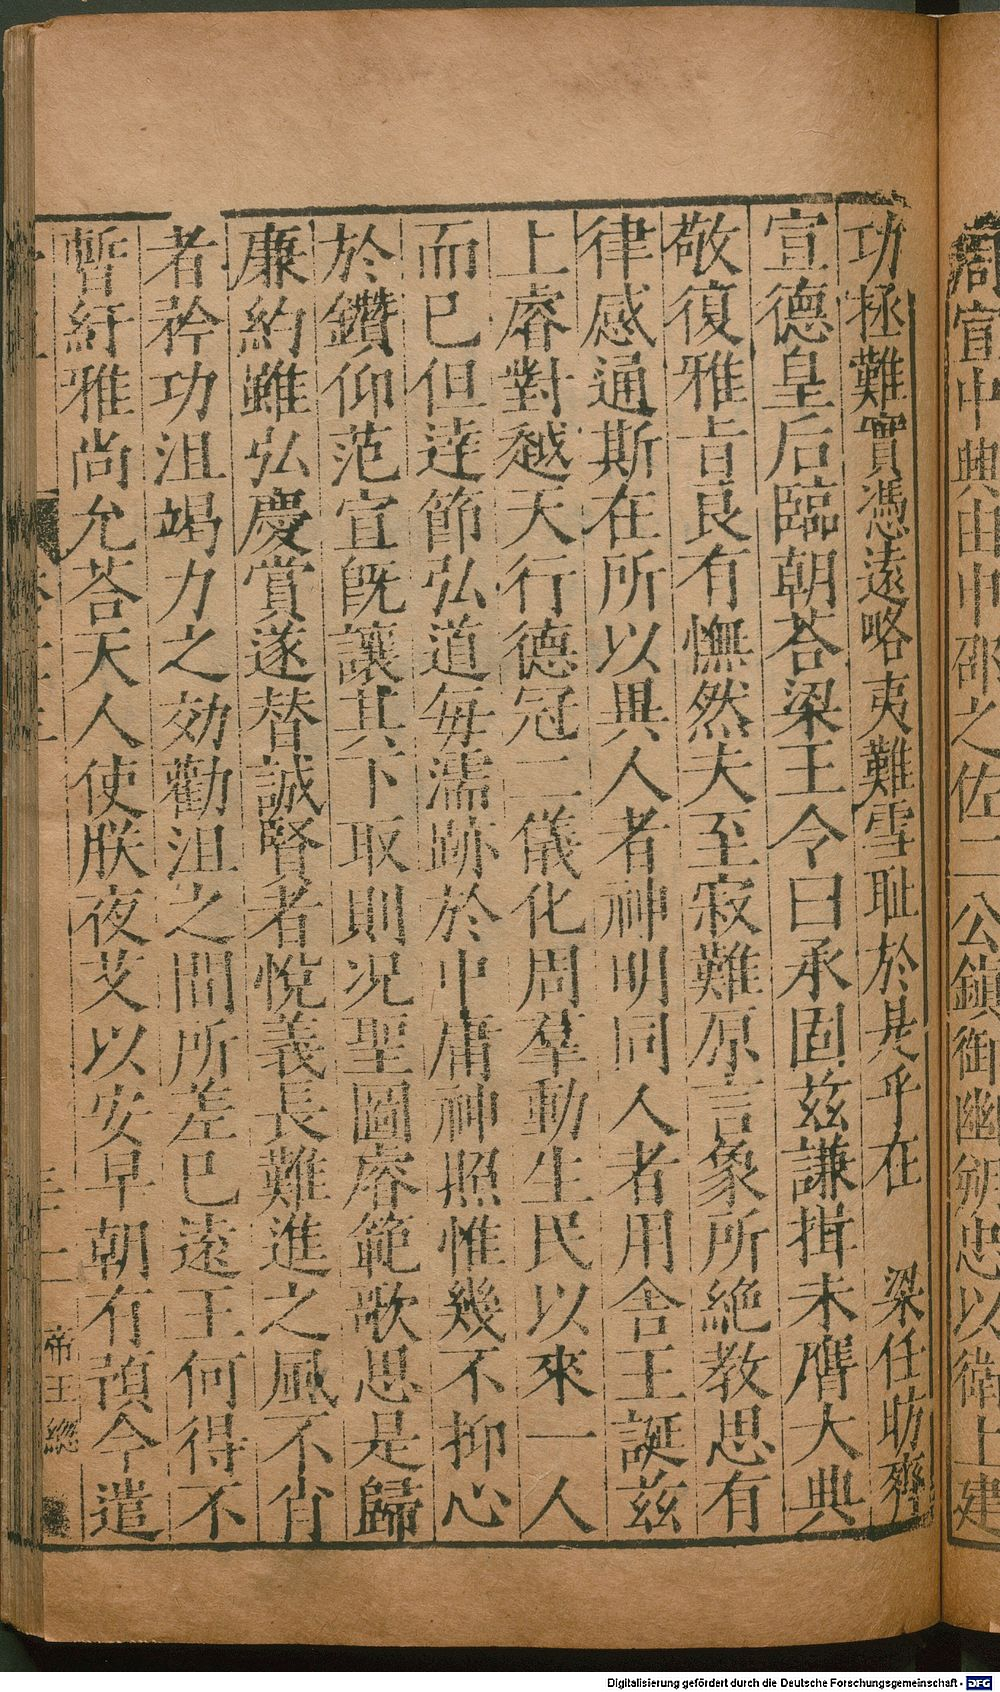 周宣中興由申邵之佐二公鎮御幽朔忠以衛上建
功拯難實憑遠略夷難雪耻於是乎在　梁任昉齊
宣德皇后臨朝荅梁王令曰承固茲謙揖未膺大典
敬復雅旨良有憮然夫至寂難原言象所絕教思有
律感通斯在所以異人者神明同人者用舍王誕茲
上睿對越天行德冠二儀化周羣動生民以來一人
而已但達節弘道每濡跡於中庸神照惟幾不抑心
於鑽仰范宣旣讓其下取則况聖圖睿範歌思是歸
廉約雖弘慶賞遂替誠賢者悅義長難進之風不肖
者矜功沮竭力之効勸沮之間所差已遠王何得不
暫紆雅尚允荅天人使朕夜艾以安早朝有預今遣
帝王總
Digitalisierung gefördert durch die Deutsche Forschungsgemeinschaft - DFG